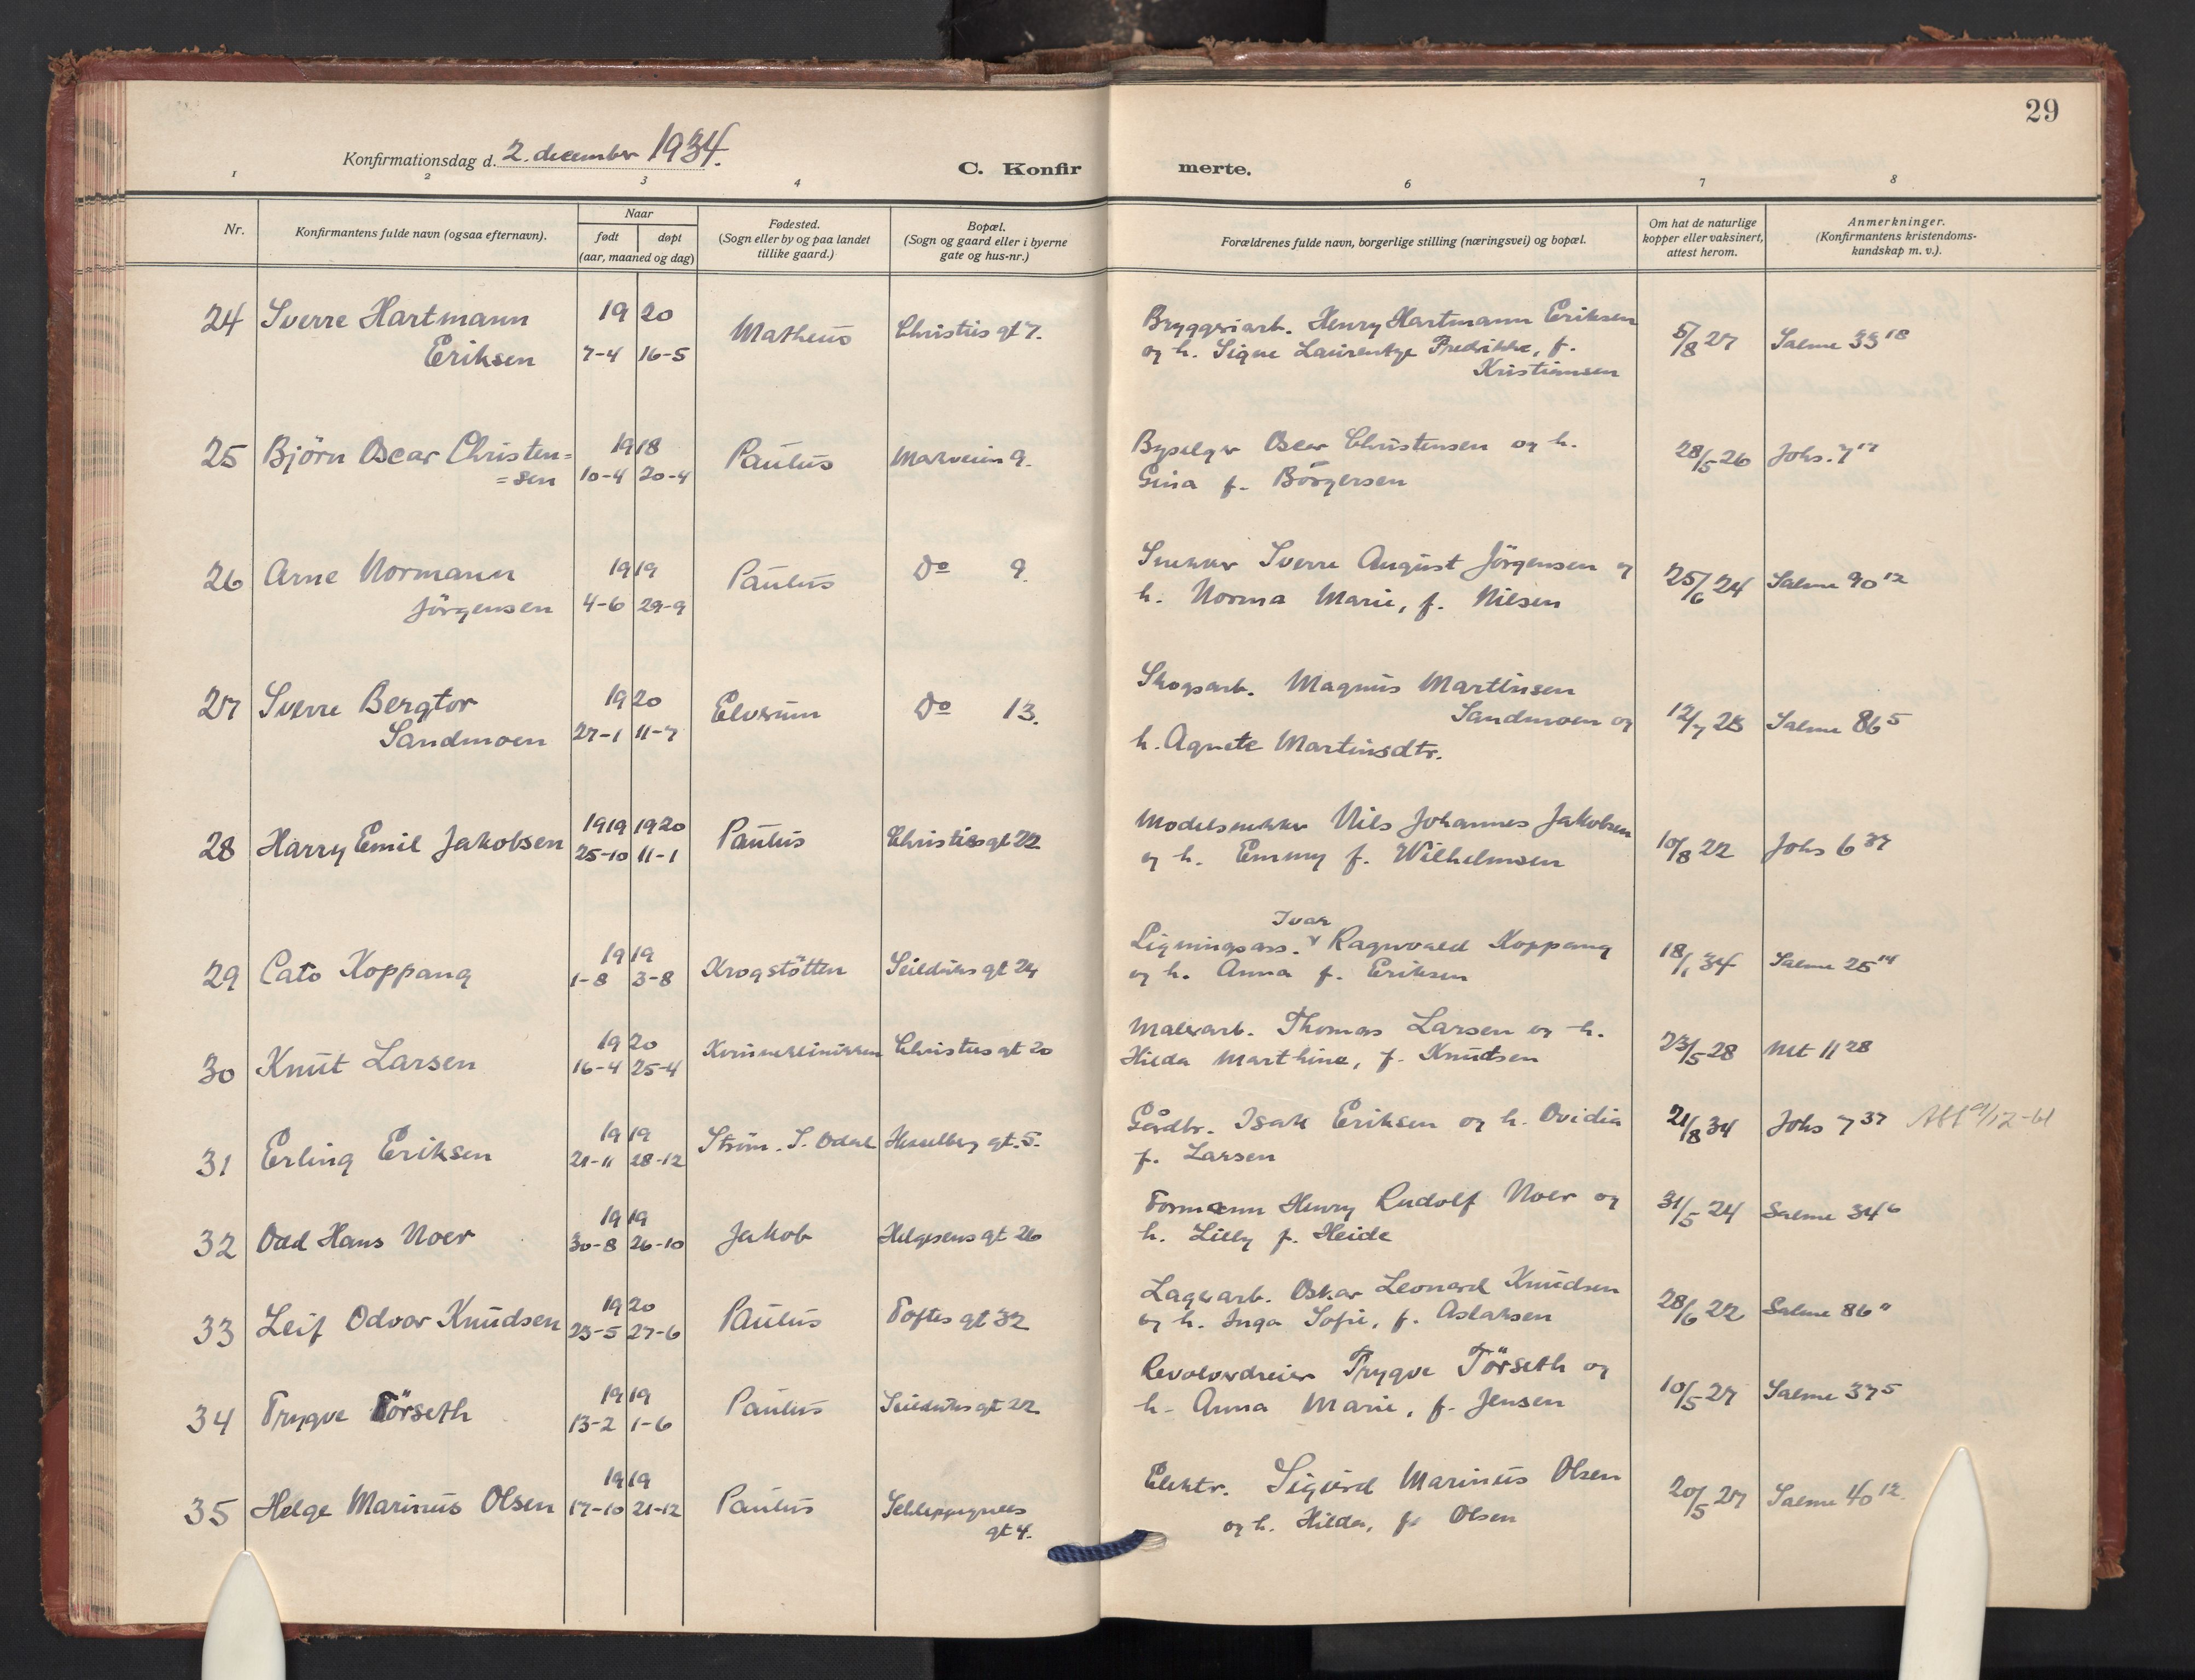 29
Konfirmationsdag d. 2. december 1934.
C. Konfir merte.
1 2 3 4 6 7 8
Nr.
Konfirmantens fulde navn (ogsaa efternavn).
Naar
født døpt
(aar, maaned og dag)
Fødested.
(Sogn eller by og paa landet
tillike gaard.)
Bopæl.
(Sogn og gaard eller i byerne
gate og hus-nr.)
Forældrenes fulde navn, borgerlige stilling (næringsvei) og bopæl.
Om hat de naturlige
kopper eller vaksinert,
attest herom.
Anmerkninger.
(Konfirmantens kristendoms-
kundskap m. v.).
24 Sverre Hartmann 19 20 Matheus Christies gt 7. Bryggeriarb. Henry Hartmann Eriksen 5/8 27 Salme 33 18
Eriksen 7-4 16-5 og h. Signe Laurentze Fredrikke, f.
Kristiansen
25 Björn Oscar Christen= 19 18 Paulus Markveien 9. Byselger Oscar Christensen og h. 28/5 26 Johs. 7 17
=sen 10-4 20-4 Gina f. Börgersen
26 Arne Normann 19 19 Paulus Do 9. Snekker Sverre August Jörgensen og 25/6 24 Salme 90 12
Jörgensen 4-6 29-9 h. Norma Marie, f. Nilsen
27 Sverre Bergtor 19 20 Elverum Do 13. Skogsarb. Magnus Martinsen
Sandmoen 27-1 11-7 Sandmoen og 12/7 28 Salme 86 5
h. Agnete Martinsdtr.
28 Harry Emil Jakobsen 1919 1920 Paulus Christies gt 22 Modelsnekker Nils Johannes Jakobsen 10/8 22 Johs 6 37
25-10 11-1 og h. Emmy f. Wilhelmsen
Ivar
29 Cato Koppang 19 19 Krogstötten Seilduks gt 24 Ligningsass. v Ragnvald Koppang 18/1 34 Salme 25 14
1-8 3-8 og h. Anna f. Eriksen
30 Knut Larsen 19 20 Kvinneklinikken Christies gt 20 Malerarb. Thomas Larsen og h. 23/5 28 Mt 11 28
16-4 25-4 Hilda Marthine, f. Knudsen
31 Erling Eriksen 19 19 Ström. S. Odal Hesselberg gt. 5. Gårdbr. Isak Eriksen og h. Ovidia 21/8 34 Johs 7 37 Att 9/12-61
21-11 28-12 f. Larsen
32 Odd Hans Noer 19 19 Jakob Helgesens gt 26 Formann Henry Rudolf Noer og 31/5 24 Salme 34 6
30-8 26-10 h. Lilly f. Heide
33 Leif Odvar Knudsen 19 20 Paulus Toftes gt 32 Lagerarb. Oskar Leonard Knudsen 28/6 22 Salme 86 11
23-5 27-6 og h. Inga Sofie, f. Aslaksen
34 Trygve Törseth 19 19 Paulus Seilduks gt 22 Revolverdreier Trygve Törseth og 10/5 27 Salme 37 5
13-2 1-6 h. Anna Marie, f. Jensen
35 Helge Marinus Olsen 19 19 Paulus Schleppegrells Elektr. Sigurd Marinus Olsen 20/5 27 Salme 40 12.
17-10 21-12 gt 4. og h. Hilda, f. Olsen